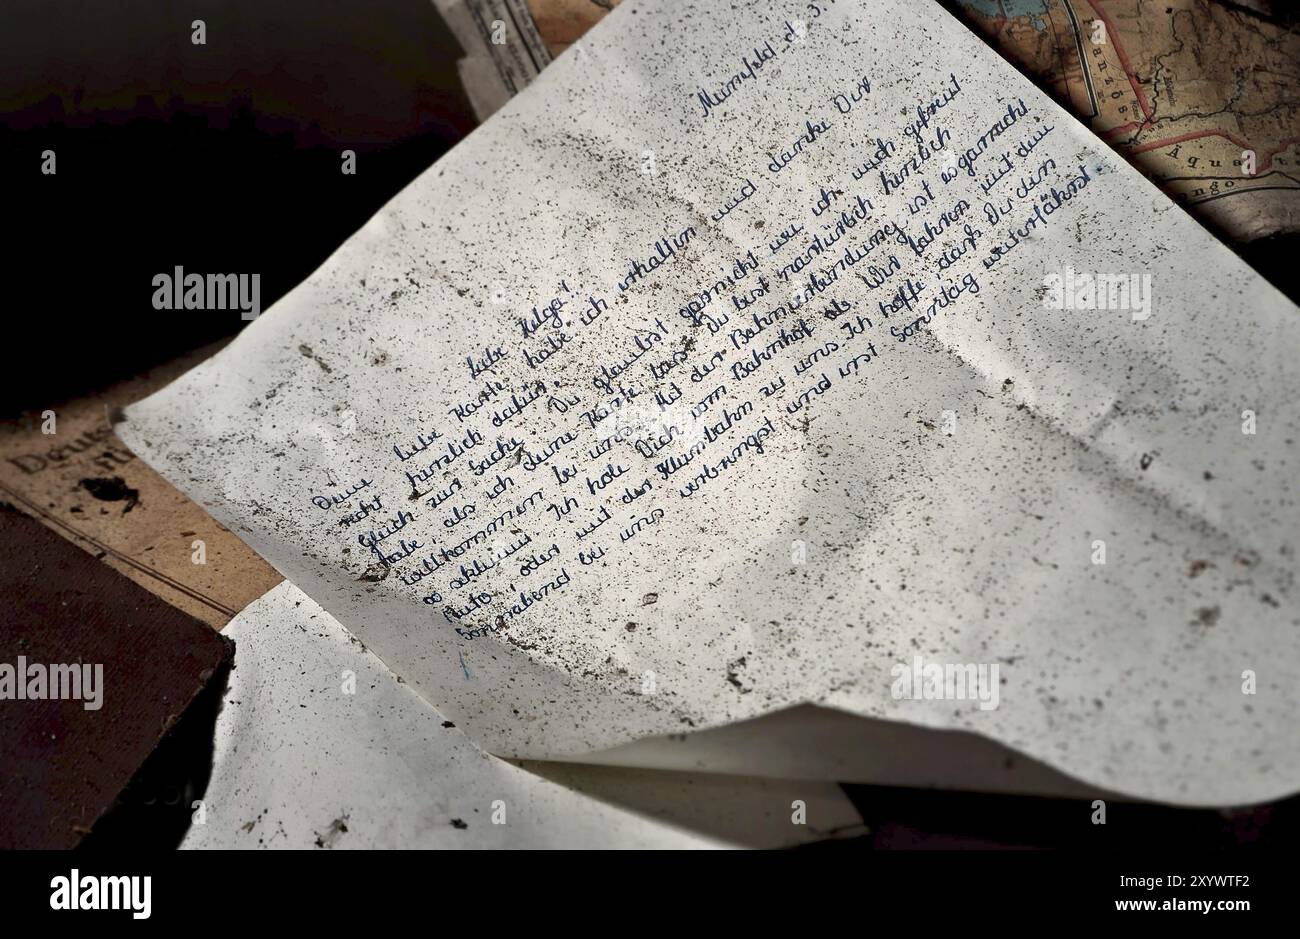 Mumpfeld d. 3.
Liebe Helga!
Deine liebe Karte habe ich erhalten und danke Dir
recht herzlich dafür. Du glaubst garnicht wie ich mich gefreut
habe, als ich deine Karte las. Du bist natürlich herzlich
willkommen bei uns. Mit der Bahnverbindung ist es garnicht
so schlimm. Ich hole Dich vom Bahnhof ab. Wir fahren mit dem
Auto, oder mit der Kleinbahn zu uns. Ich hoffe das Du den
Sonnabend bei uns verbringst und erst Sonntag weiterfährst.
Gleich zur Sache.
Deut
Franzö
Äqua
ngo
alamy
Image ID: 2XYWTF2
www.alamy.com